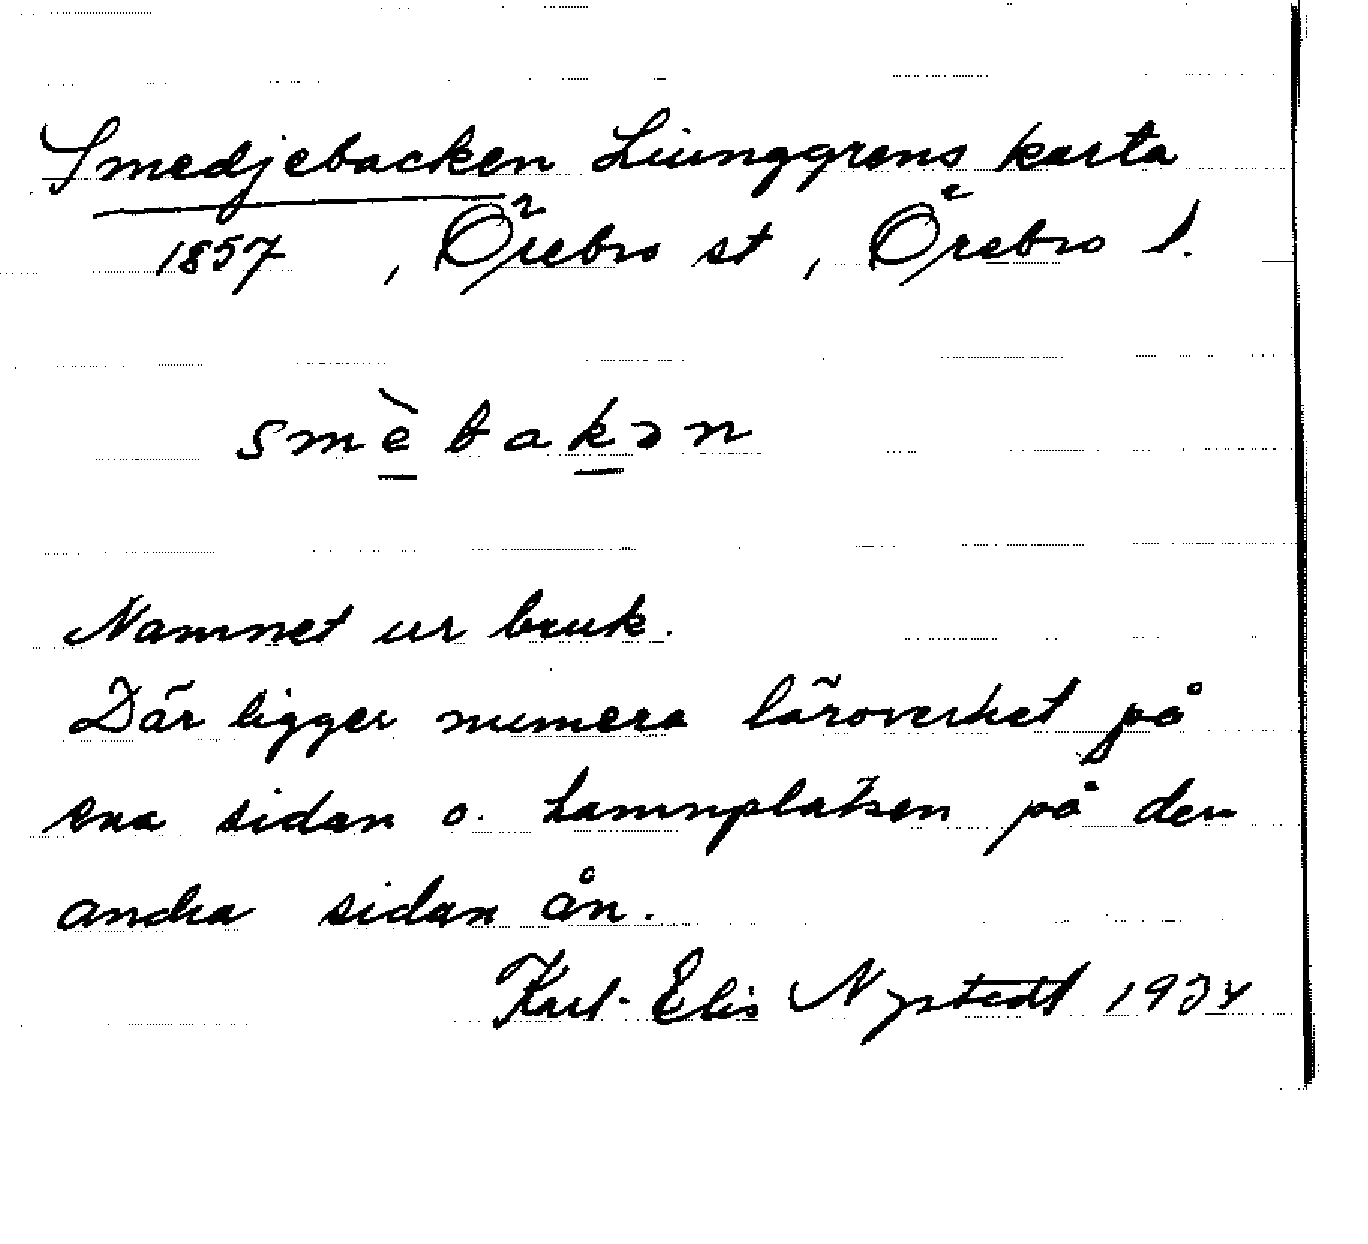 Smedjebacken Liunggrens karta
1857, Örebro st, Örebro l.
smèbakən
Namnet ur bruk.
Där ligger numera läroverket på
ena sidan o. hamnplatsen på den
andra sidan ån.
Karl-Elis Nystedt 1934